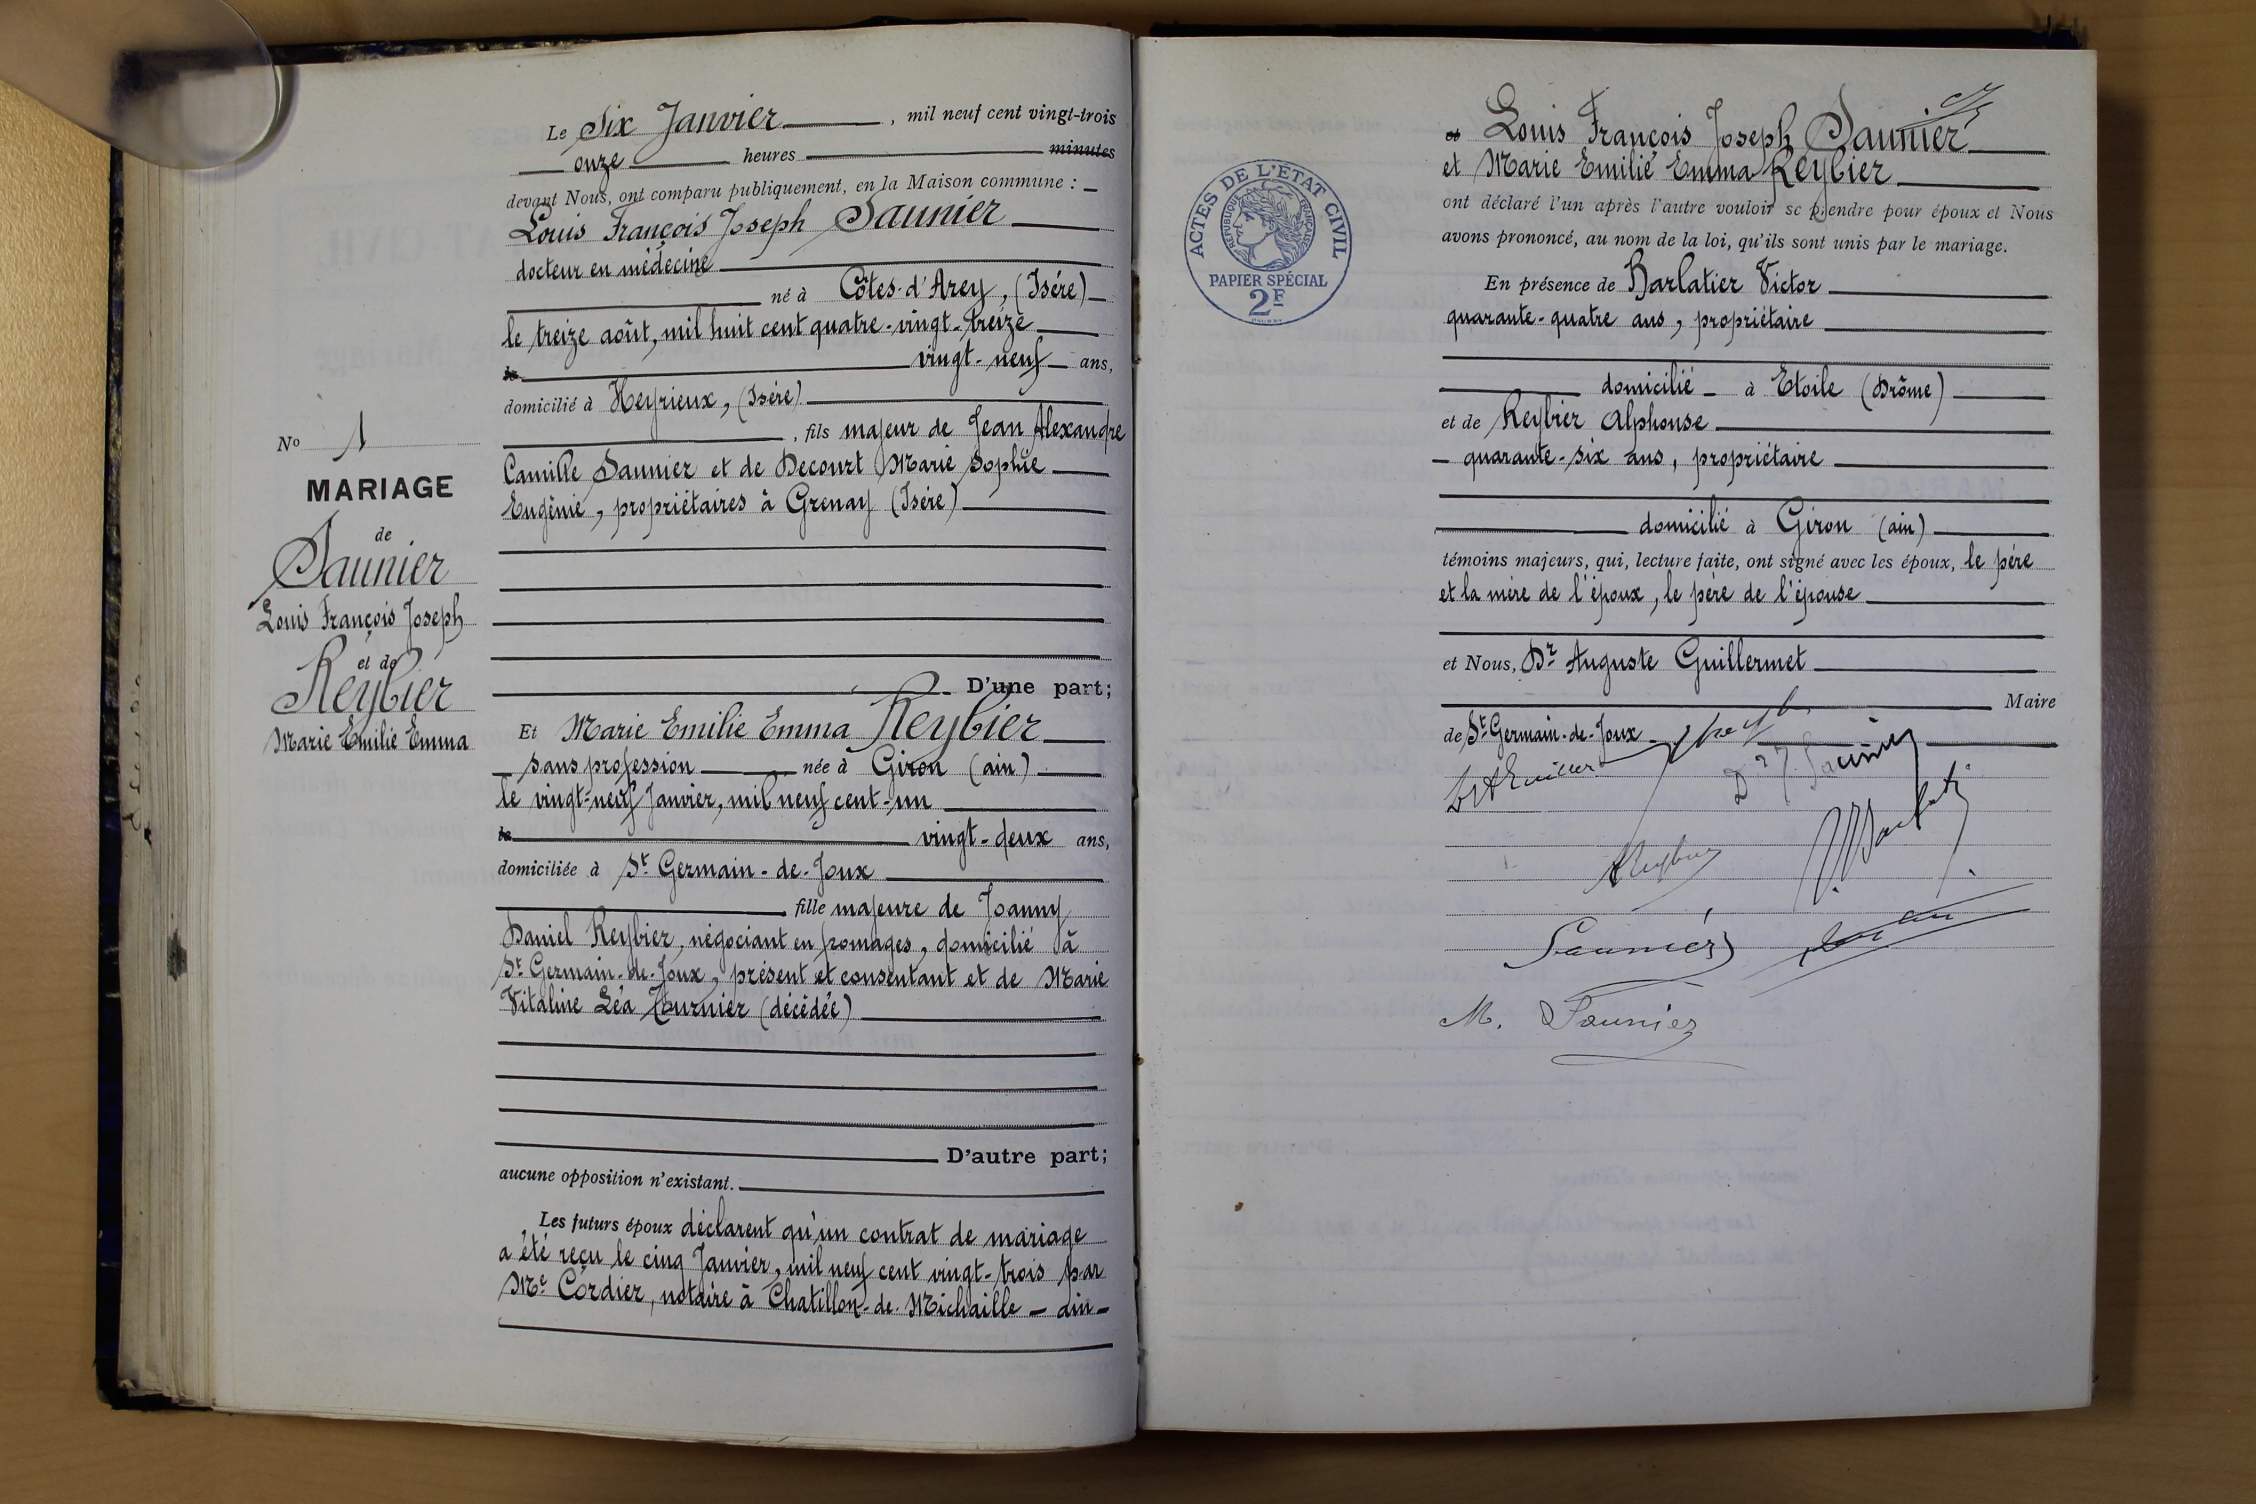 Le Six Janvier, mil neuf cent vingt-trois
onze heures minutes
devant Nous, ont comparu publiquement, en la Maison commune :
Louis François Joseph Saunier
docteur en médecine
né à Côtes-d'Arey, (Isére)
le treize août, mil huit cent quatre-vingt-treize
le vingt-neuf ans,
domicilié à Heyrieux, (Isére)
, fils majeur de Jean Alexandre
Camille Saunier et de Decourt Marie Sophie
Eugénie, propriétaires à Grenay (Isére)
D'une part;
Et Marie Emilie Emma Reybier
sans profession née à Giron (ain)
le vingt-neuf Janvier, mil neuf cent-un
le vingt-deux ans,
domiciliée à St Germain-de-Joux
fille majeure de Joanny
Daniel Reybier, négociant en fromages, domicilié à
St Germain-de-Joux, présent et consentant et de Marie
Vitaline Léa Tournier (décédée)
D'autre part;
aucune opposition n'existant.
Les futurs époux déclarent qu'un contrat de mariage
a été reçu le cinq Janvier, mil neuf cent vingt-trois par
Me Cordier, notaire à Chatillon-de-Michaille - ain -
No 1
MARIAGE
de
Saunier
Louis François Joseph
et de
Reybier
Marie Emilie Emma
ACTES DE L'ETAT CIVIL
REPUBLIQUE FRANÇAISE
PAPIER SPÉCIAL
2F
Louis François Joseph Saunier
et Marie Emilie Emma Reybier
ont déclaré l'un après l'autre vouloir se prendre pour époux et Nous
avons prononcé, au nom de la loi, qu'ils sont unis par le mariage.
En présence de Barlatier Victor
quarante-quatre ans, propriétaire
domicilié à Etoile (Drôme)
et de Reybier Alphonse
quarante-six ans, propriétaire
domicilié à Giron (ain)
témoins majeurs, qui, lecture faite, ont signé avec les époux, le père
et la mère de l'époux, le père de l'épouse
et Nous, Dr Auguste Guillermet
Maire
de St Germain-de-Joux
Dr J. Saunier
Saunier
M. Saunier